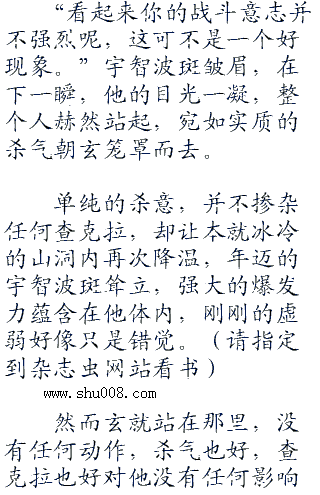 “看起来你的战斗意志并
不强烈呢，这可不是一个好
现象。”宇智波斑皱眉，在
下一瞬，他的目光一凝，整
个人赫然站起，宛如实质的
杀气朝玄笼罩而去。
单纯的杀意，并不掺杂
任何查克拉，却让本就冰冷
的山洞内再次降温，年迈的
宇智波斑耸立，强大的爆发
力蕴含在他体内，刚刚的虚
弱好像只是错觉。（请指定
到杂志虫网站看书）
www.shu008.com
然而玄就站在那里，没
有任何动作，杀气也好，查
克拉也好对他没有任何影响